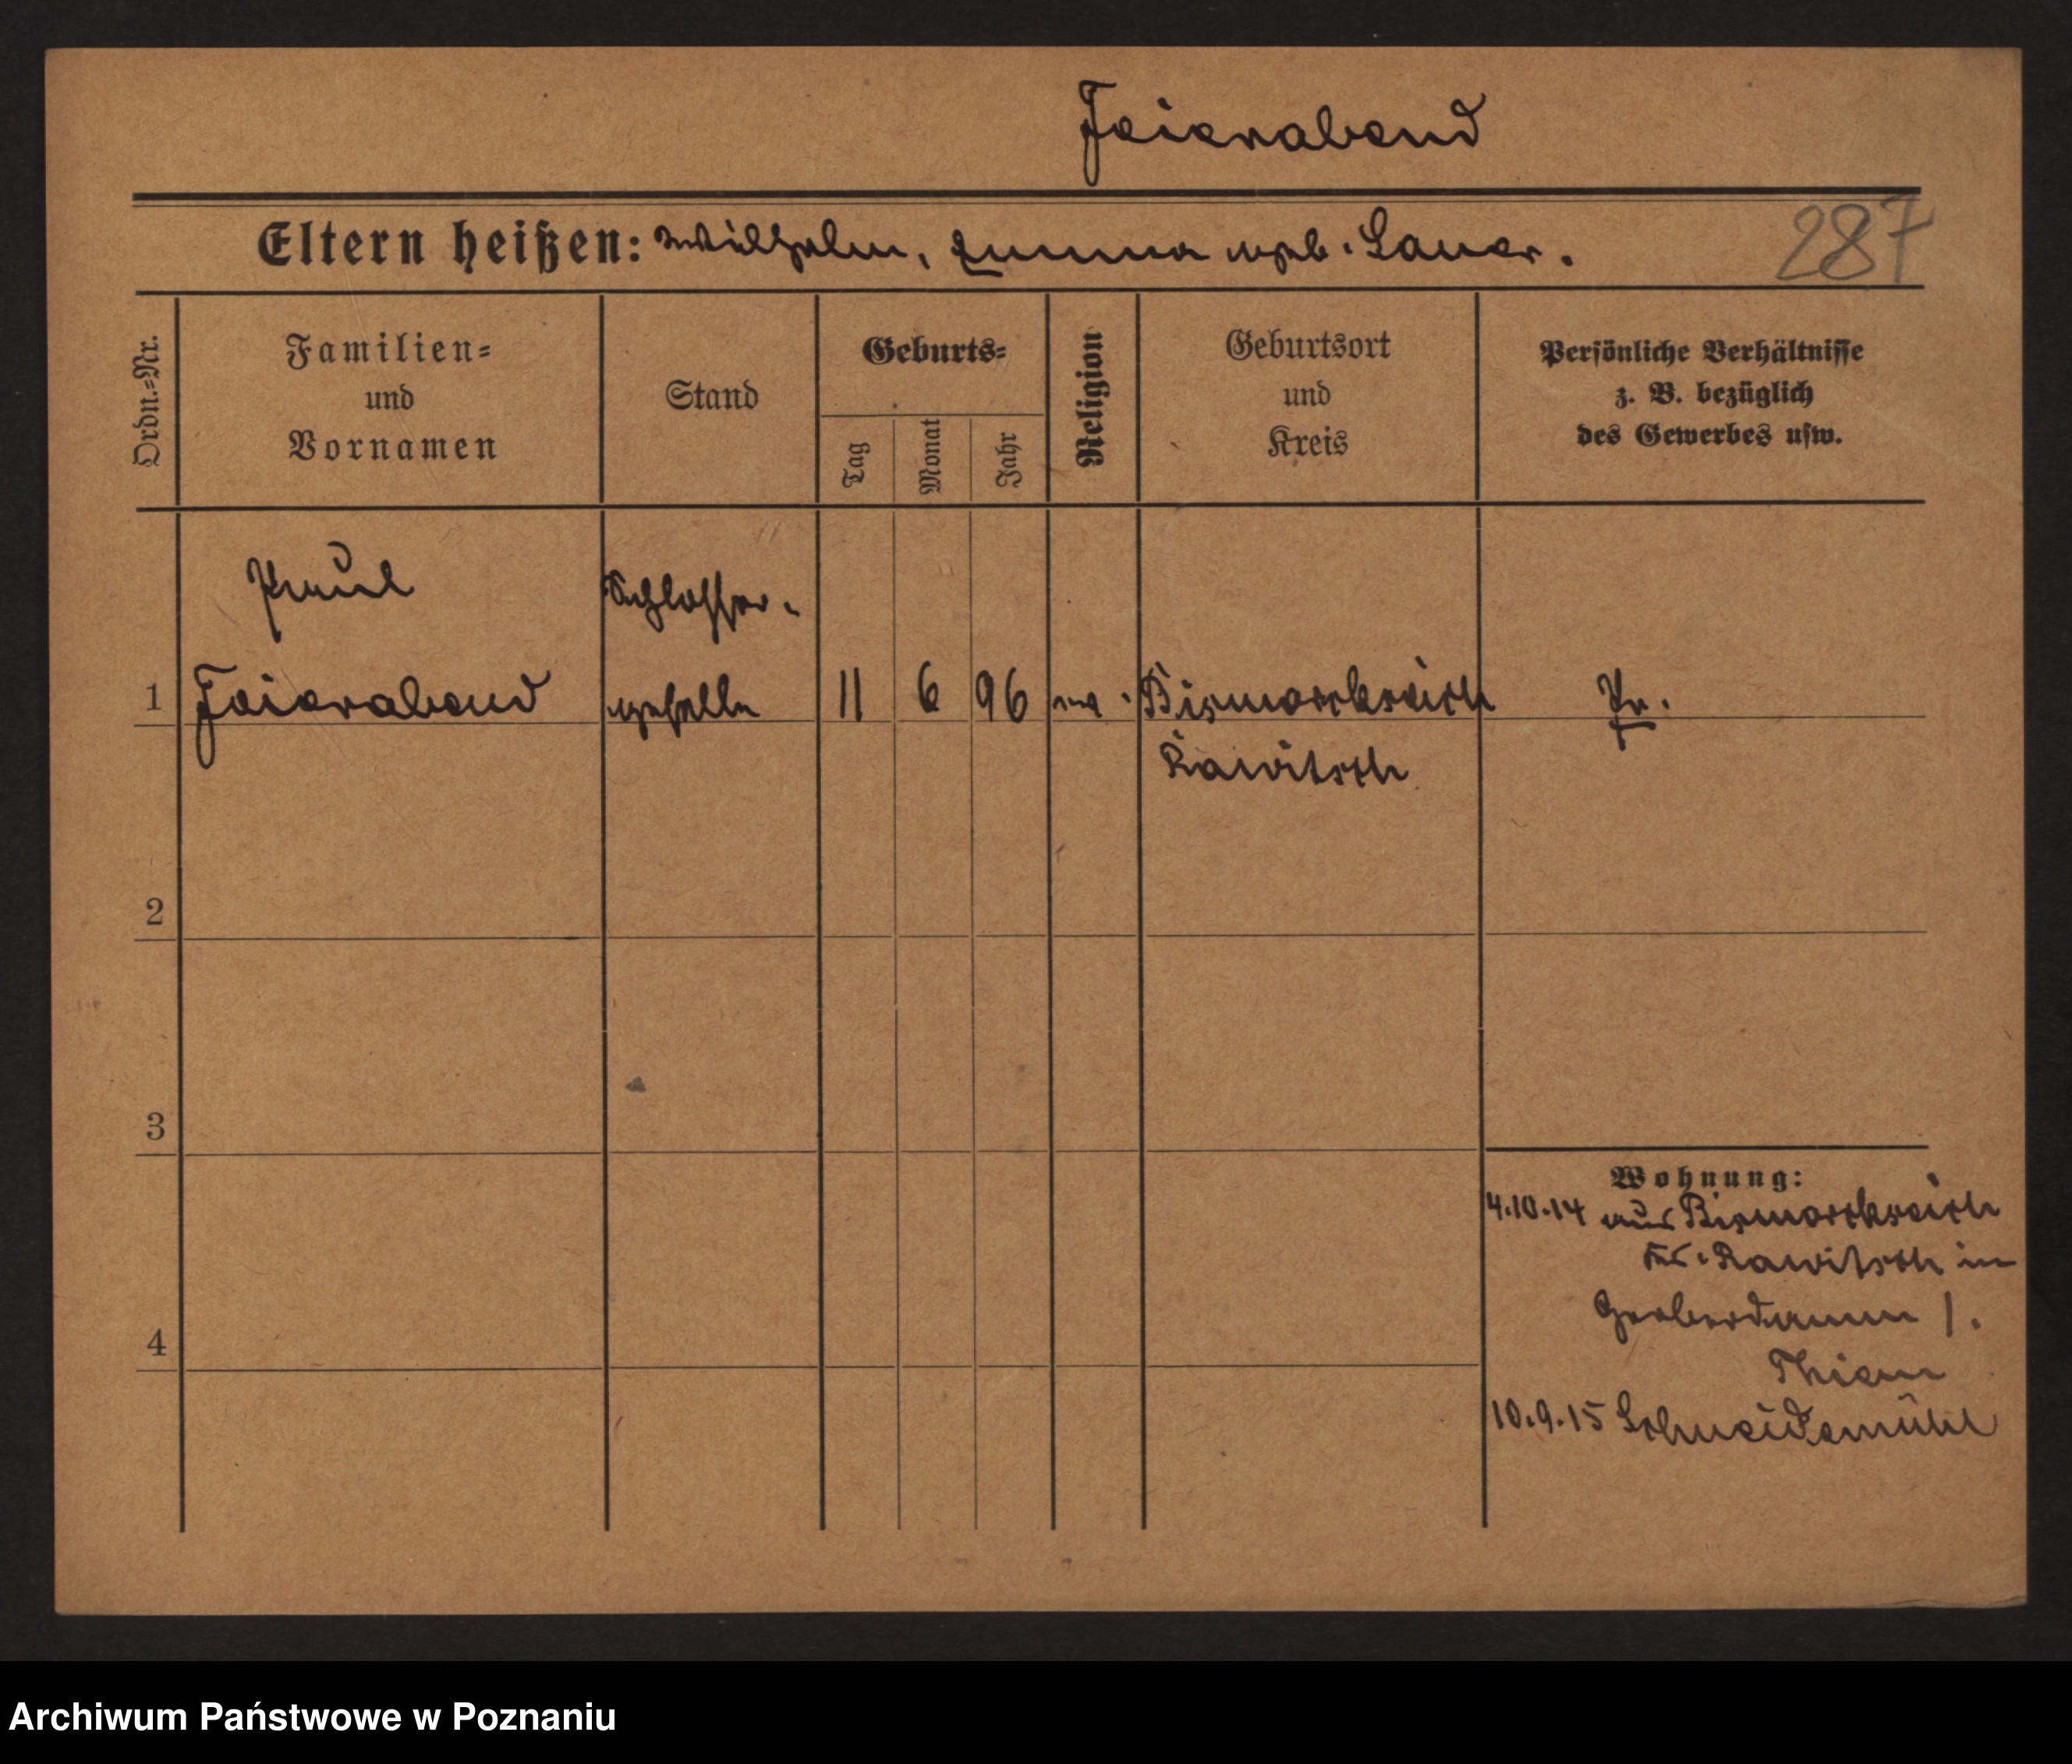 Feierabend
Eltern heißen: Wilhelm, Emma geb. Lauer.
287
Ordn.=Nr.
Familien=
und
Vornamen
Stand
Geburts=
Tag
Monat
Jahr
Religion
Geburtsort
und
Kreis
Persönliche Verhältnisse
z. B. bezüglich
des Gewerbes usw.
Paul
Schlosser-
1 Feierabend geselle 11 6 96 Bismarcksreich Pr.
Rawitsch
2
3
Wohnung:
4.10.14 aus Bismarcksreich
Kr. Rawitsch in
Gerberdamm 1.
4
Thiem
10.9.15 Schneidemühl
Archiwum Państwowe w Poznaniu